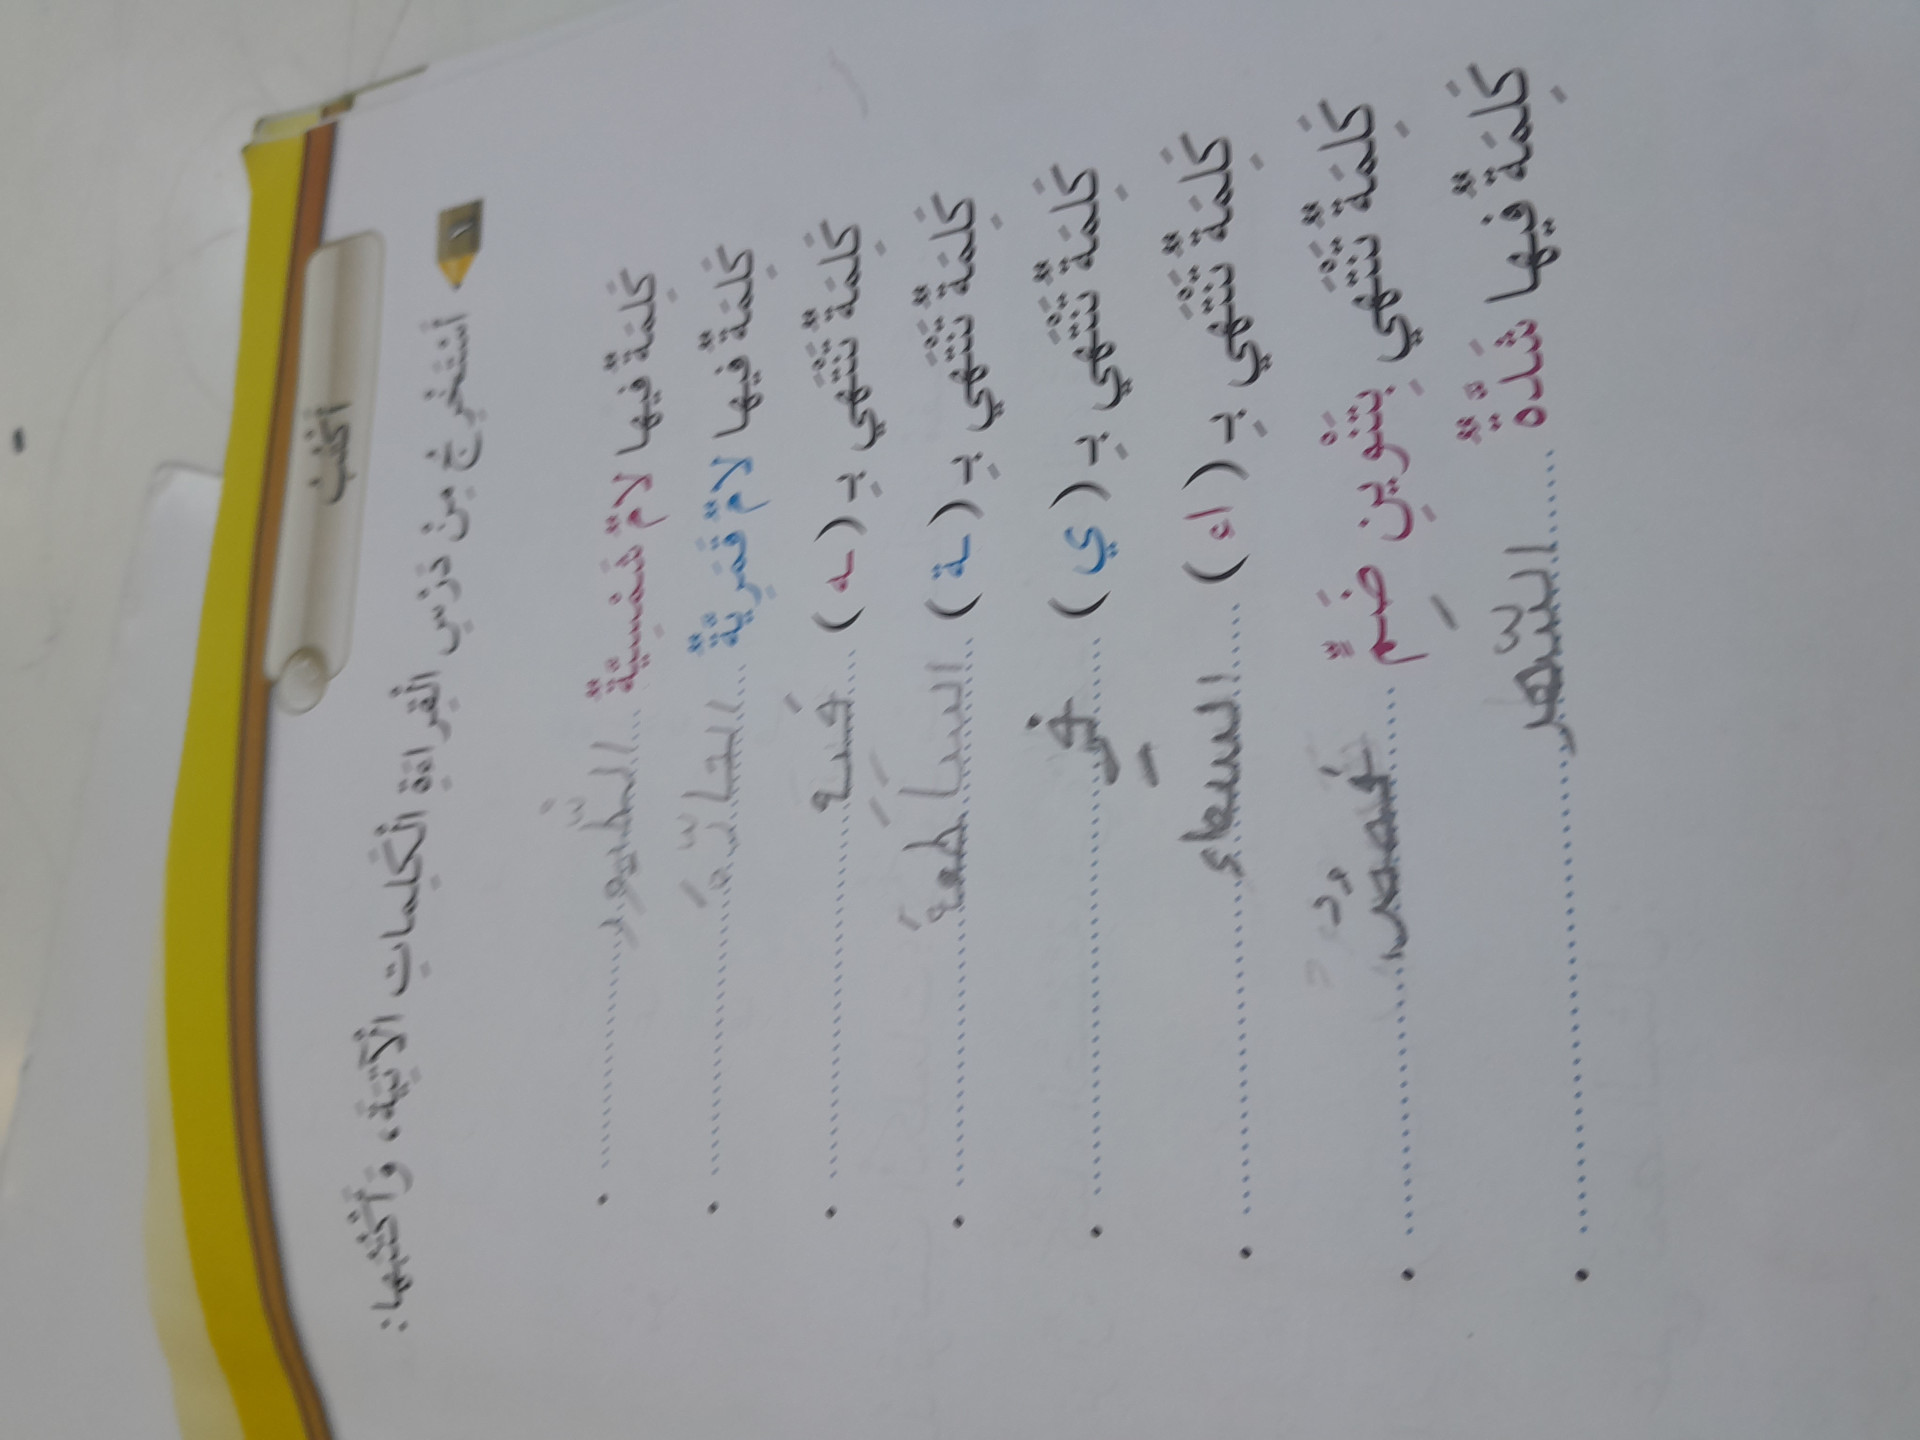 أَكْتُبُ
١ أَسْتَخْرِجُ مِنْ دَرْسِ الْقِراءَةِ الْكَلِماتِ الْآتِيَةَ، وَأَكْتُبُها:
كَلِمَةٌ فيها لامٌ شَمْسِيَّةٌ ........ الطّيور ........ •
كَلِمَةٌ فيها لامٌ قَمَرِيَّةٌ ........ ........ •
كَلِمَةٌ تَنْتَهي بِـ ( ـه ) ........ ........ •
كَلِمَةٌ تَنْتَهي بِـ ( ـة ) ........ السَاطعةَ ........ •
كَلِمَةٌ تَنْتَهي بِـ ( ي ) ........ في ........ •
كَلِمَةٌ تَنْتَهي بِـ ( اء ) ........ السماء ........ •
كَلِمَةٌ تَنْتَهي بِتَنْوينِ ضَمٍّ ........ ........ •
كَلِمَةٌ فيها شَدَّةٌ ........ ........ •